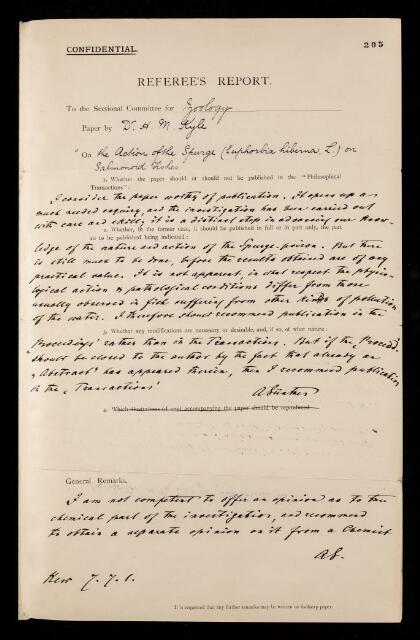 CONFIDENTIAL.
205
REFEREE'S REPORT.
To the Sectional Committee for Zoology
Paper by Dr. H. M. Kyle
"On the Action of the Spurge (Euphorbia hiberna, L.) on
Salmonoid Fishes
1. Whether the paper should or should not be published in the "Philosophical
Transactions":
I consider the paper worthy of publication. It opens up a
much needed enquiry, and the investigation has been carried out
with care and skill; it is a distinct step in advancing our know-
2. Whether, in the former case, it should be published in full or in part only, the part
so to be published being indicated:
ledge of the nature and action of the Spurge-poison. But there
is still much to be done, before the results obtained are of any
practical value. It is not apparent, in what respect the physio-
logical action & pathological conditions differ from those
usually observed in fish suffering from other kinds of pollution
of the water. I therefore should recommend publication in the
3. Whether any modifications are necessary or desirable, and, if so, of what nature:
'Proceedings' rather than in the Transactions. But if the 'Proceed.'
should be closed to the author by the fact that already an
'Abstract' has appeared therein, then I recommend publication
in the 'Transactions'
A Günther
4. Which illustrations (if any) accompanying the paper should be reproduced
General Remarks.
I am not competent to offer an opinion as to the
chemical part of the investigation, and recommend
to obtain a separate opinion on it from a Chemist.
A.G.
Kew 7.7.1.
It is requested that any further remarks may be written on foolscap paper.